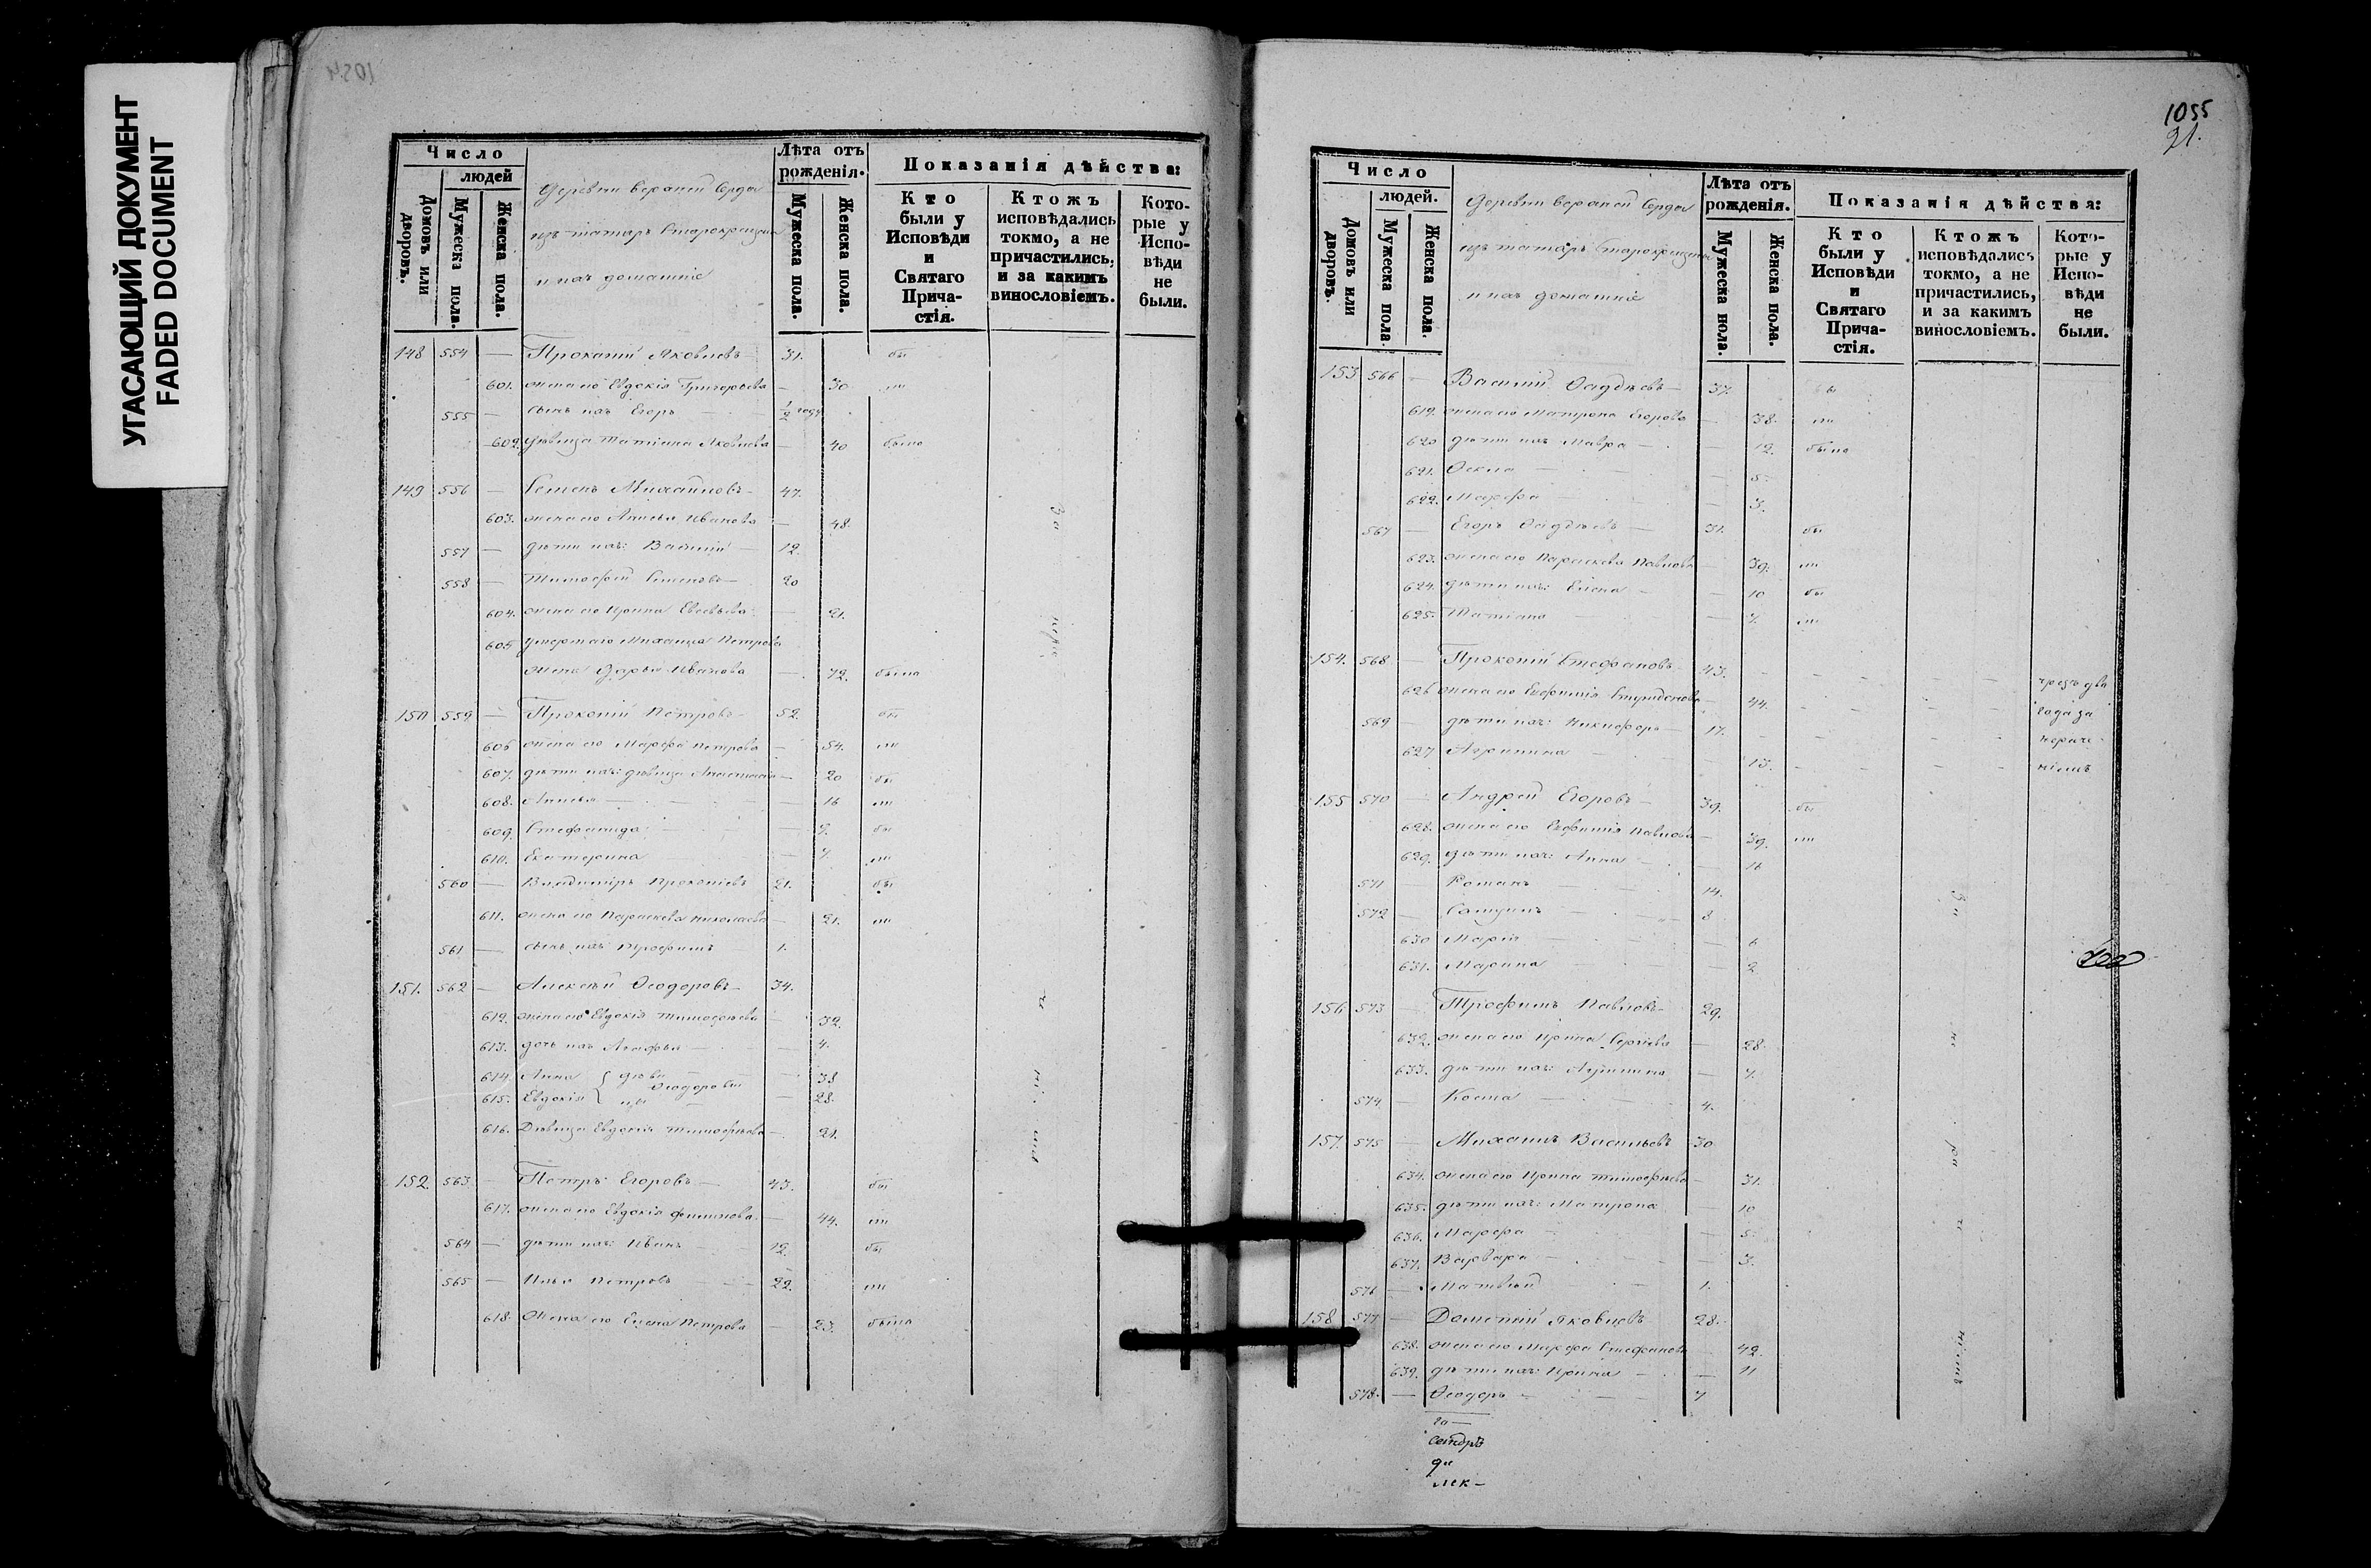 УГАСАЮЩИЙ ДОКУМЕНТ
FADED DOCUMENT
Число
людей
Домовъ или дворовъ.
Мужеска пола.
Женска пола.
Деревни Верхней Серды
изъ татаръ Старокрещены
и ихъ домашніе
Лѣта отъ рожденія.
Мужеска пола.
Женска пола.
Показанія дѣйства:
Кто были у Исповѣди и Святаго Прича-стія.
Ктожъ исповѣдались токмо, а не причастились, и за какимъ винословіемъ.
Кото-рые у Испо-вѣди не были.
148 554 — Прокопій Яковлевъ 31. бы
601. жена его Евдокія Григорьева — 30 ли
555 — сынъ ихъ Егоръ ½ года
602. дѣвица Татіана Яковлева — 40 была
149 556 — Семенъ Михайловъ 47.
603. жена его Анисья Иванова — 48.
557 — дѣти ихъ: Василій 12.
558 — Тимофей Семеновъ 20
604. жена его Ирина — 21.
605 умершаго Михаила Петрова
жена Дарья Иванова — 72. была
150 559 — Прокопій Петровъ 52. бы
606 жена его Марфа Петрова — 54. ли
607. дѣти ихъ: дѣвица Анастасія — 20 бы
608. Анисья — 16 ли
609. Стефанида — 9. бы
610. Екатерина — 7. ли
560 — Владиміръ Прокопіевъ 21. бы
611. жена его Параскева Николаева — 21. ли
561 — сынъ ихъ Трофимъ 1.
151. 562 — Алексѣй Ѳеодоровъ 34.
612. жена его Евдокія Тимофѣева — 32.
613. дочь ихъ Агафья — 4.
614. Анна { дѣви Ѳеодоровы — 38
615. Евдокія цы — 28.
616. Дѣвица Евдокія Тимофѣева — 21.
152. 563 — Петръ Егоровъ 43. бы
617. жена его Евдокія Филиппова — 44. ли
564 — дѣти ихъ: Иванъ 12. бы
565 — Илья Петровъ 22. ли
618. жена его Елена Петрова — 23. была
За
че
ніемъ
1055
21.
Число
людей.
Домовъ или дворовъ.
Мужеска пола.
Женска пола.
Деревни Верхней Серды
изъ татаръ Старокрещены
и ихъ домашніе
Лѣта отъ рожденія.
Мужеска пола.
Женска пола.
Показанія дѣйства:
Кто были у Исповѣди и Святаго Прича-стія.
Ктожъ исповѣдались токмо, а не причастились, и за какимъ винословіемъ.
Кото-рые у Испо-вѣди не были.
153 566 — Василій 37. бы
619. жена его Матрона Егорова — 38. ли
620 дѣти ихъ Мавра — 12. была
621. Ѳекла — 5.
622. Марфа — 3.
567 — Егоръ 31. бы
623. жена его Параскева Павлова — 39. ли
624. дѣти ихъ: Елена — 10 бы
625. Татіана — 7. ли
154. 568 — Прокопій Стефановъ 43. чрезъ два
626 жена его Евфимія Спиридонова — 44. года за
569 — дѣти ихъ: Никифоръ 17. нераче-
627. Агрипина — 13. ніемъ
155 570 — Андрей Егоровъ 39. бы
628. жена его Евфимія Павлова — 39. ли
629. дѣти ихъ: Анна — 16
571 — Романъ 14.
572 — 8
630 Марія — 6
631. Марина — 2
156 573 — Трофимъ Павловъ 29.
632. жена его Ирина Сергіева — 28.
633. дѣти ихъ: — 7.
574 — Косма 4.
157. 575 — Михаилъ Васильевъ 30
634. жена его Ирина Тимофѣева — 31.
635. дѣти ихъ: Матрона — 10
636. Марфа — 5.
637. Варвара — 3.
576 — Матвѣй 1.
158 577 — Дометій Яковлевъ 28.
638. жена его Марфа Стефанова — 42.
639. дѣти ихъ: Ирина — 11
578. — Ѳеодоръ 7
За
не
ра
че
ніемъ